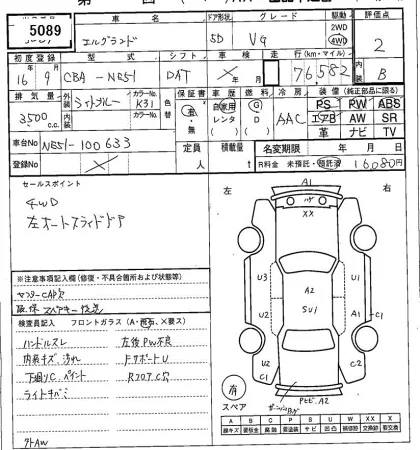 5089
車名
ドア形状
グレード
駆動
評価点
エルグランド
5D
VG
2WD
4WD
2
初度登録
型式
シフト
車検
走行(km・マイル)
内装
16年 9月
CBA-NE51
DAT
76,582
B
排気量
外装
カラーNo.
色替
保証書
燃料
冷房
装備(純正部品に限る)
3500 c.c.
ライトブルー
K31
有・無
自家用
レンタ
G
D
AAC
PS PW ABS
エアB AW SR
革 ナビ TV
車台No
NE51-100633
定員
人
積載量
t
名変期限
年 月 日
登録No
R料金 未預託・預託済
16,080円
セールスポイント
4WD
左オートスライドドア
左
右
A1
XX
U3
A2
SU1
A1
U2
U2
C1
C1
A2
有
スペア
※注意事項記入欄(修復・不具合箇所および状態等)
マフラーCAP欠
取保 スペアキー後送
検査員記入
フロントガラス(A・飛石・×要ス)
ハンドルスレ
左後PW不良
内装キズ、汚れ
下廻りC、ペイント
RフロアC穴
ライトキバミ
社外AW
A B C P S U W X XX
線キズ 要板金 腐食 要塗装 サビ 凹凸 補修跡 交換跡 要交換